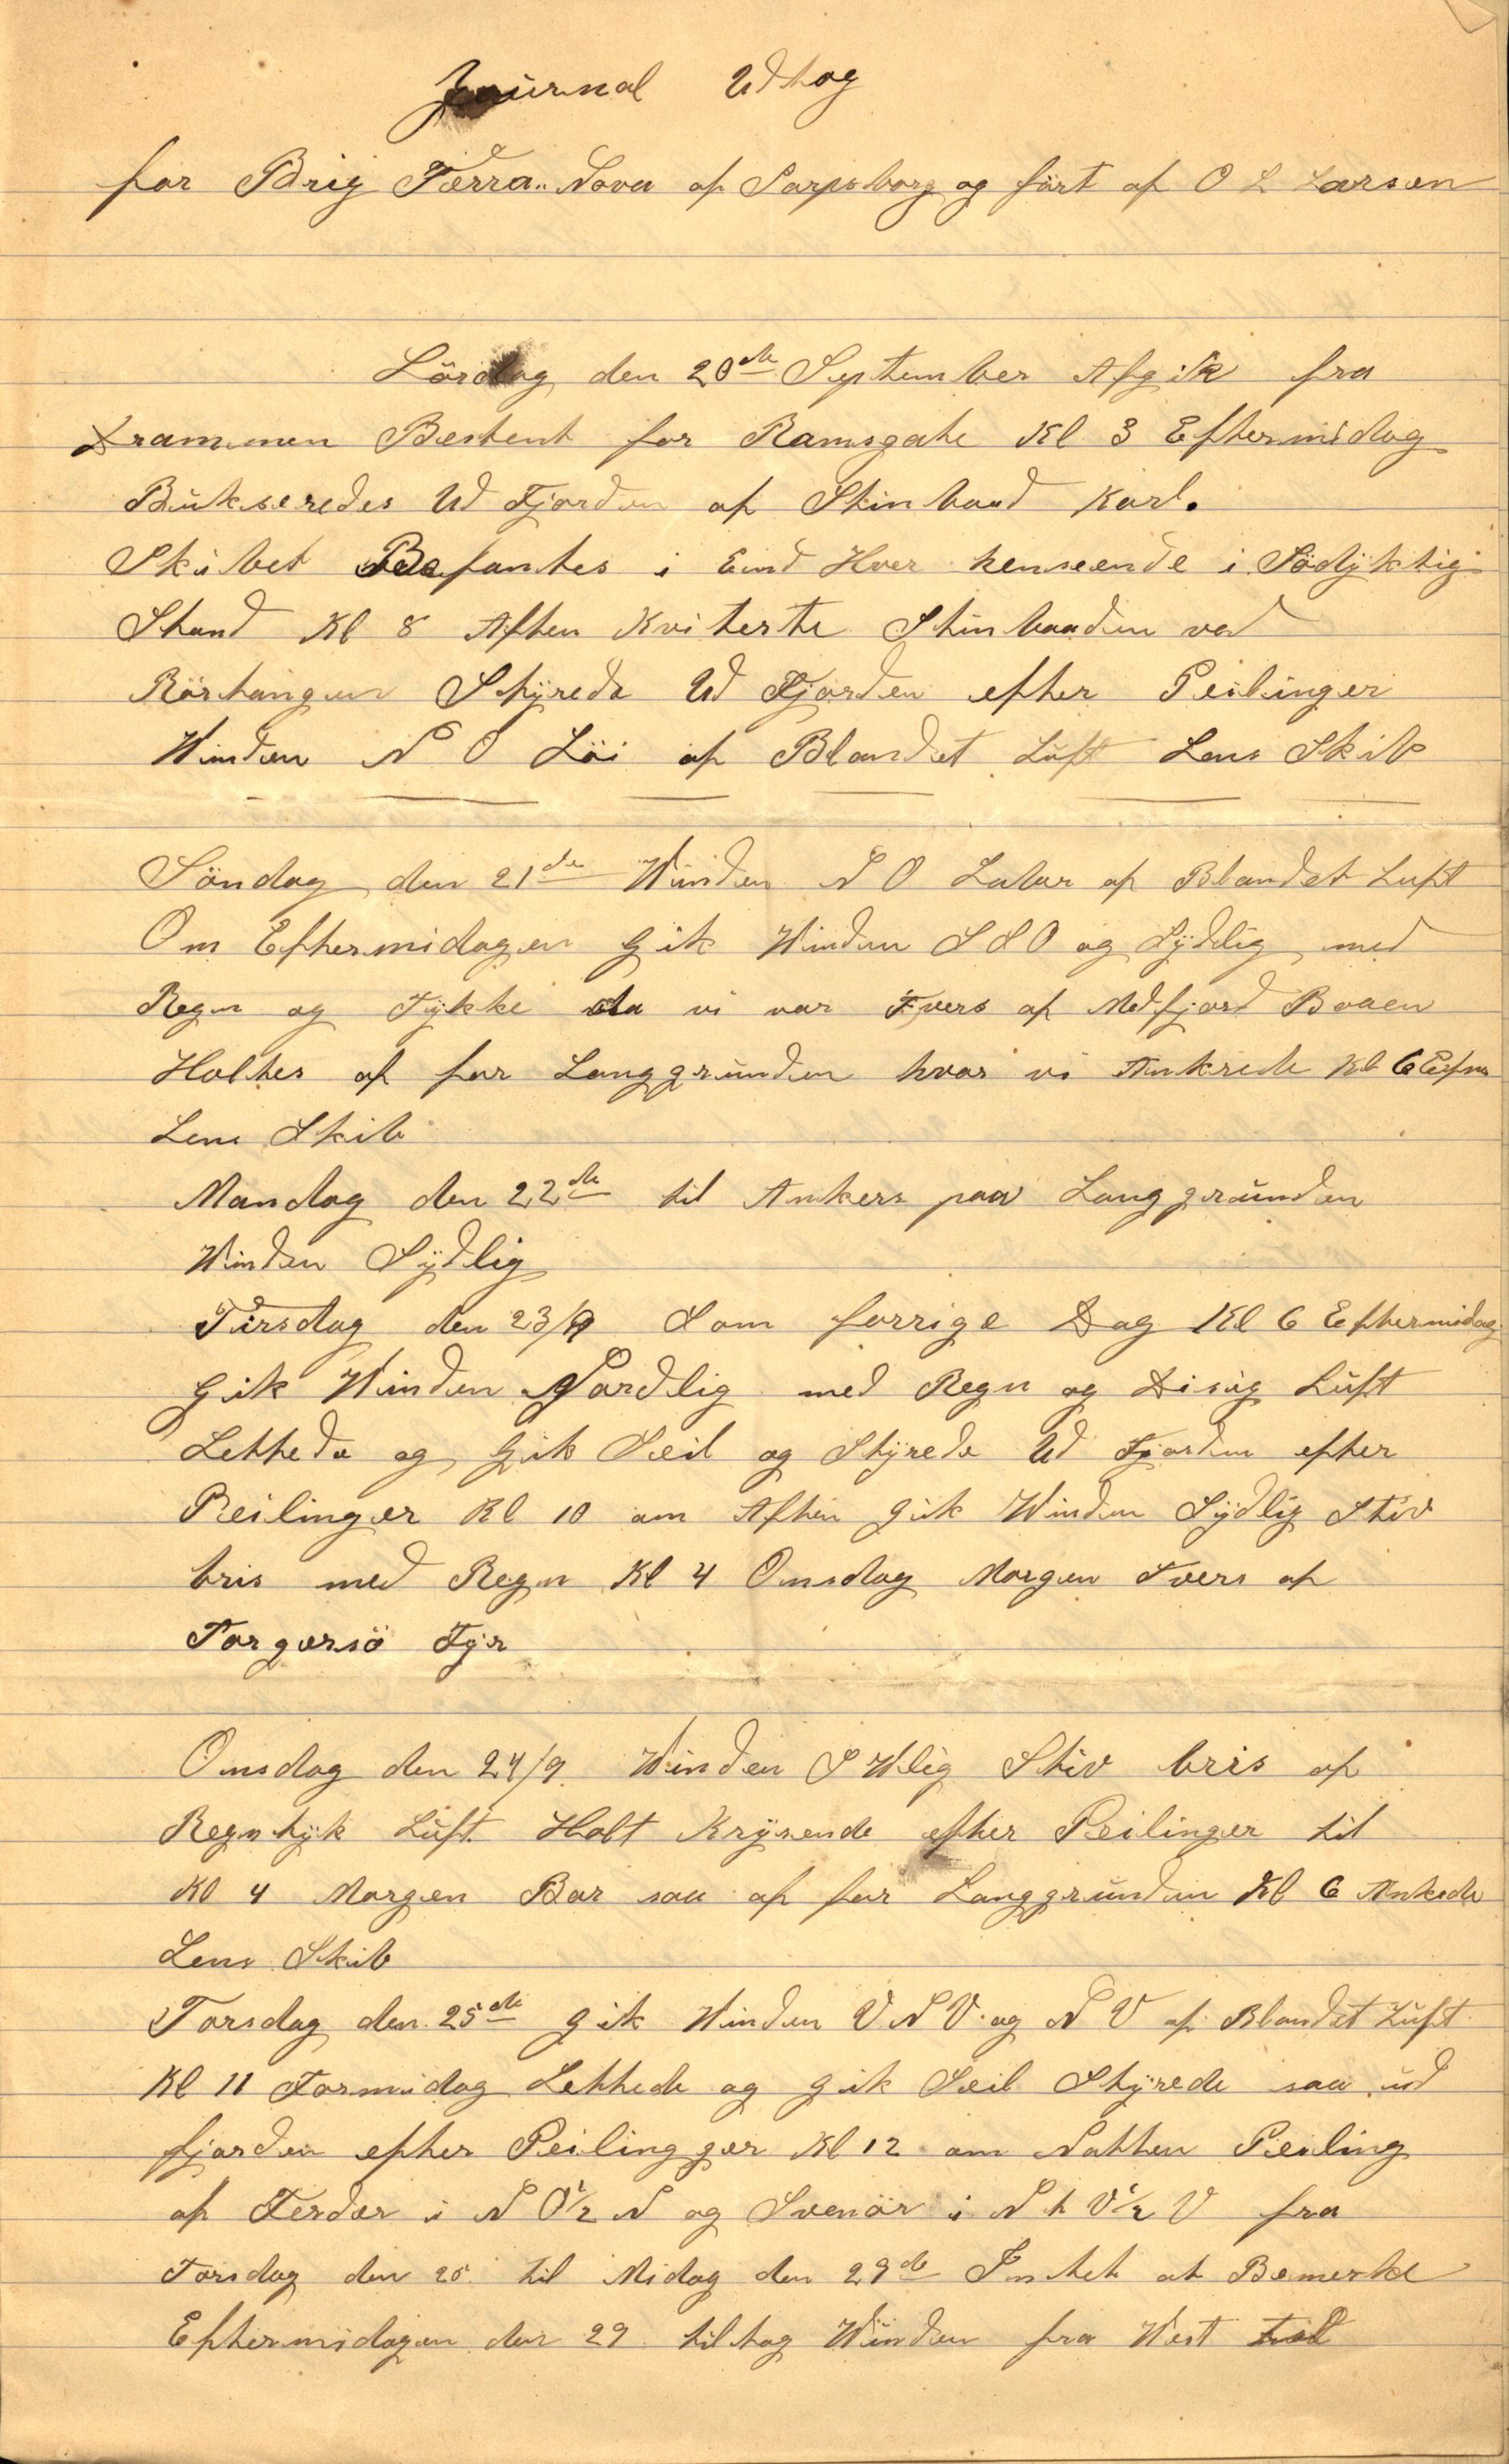 Journal Udtog
for Brig Tærra „ Nova af Sarpsborg og ført af O L Larsen
Lördag den 20de September Afgik fra
Drammen Bestent for Ramsgate Kl 3 Eftermidag
Bukseredes Ud Fjorden af Stinbaad Karl.
Skibet Befantes i End Hver henseende i Södyktig
Stand Kl 8 Aften Kviterte Stinbaaden ved
Rörtangen Styrede Ud Fjorden efter Peilinger
Winden N O Löi af Blandet Luft Lens Skib
Söndag den 21de Winden N O Laber af Blandet Luft
Om Eftermidagen Gik Winden S S O og Sydlig med
Regn og Tykke da vi var Tvers af Medfjord Baaen
Holtes af for Langgrunden hvor vi Ankrede Kl 6 Efm
Lens Skib
Mandag den 22de til Ankers paa Langgrunden
Winden Sydlig
Tirsdag den 23/9 Som forrige Dag Kl 6 Eftermidag
Gik Winden Nordlig med Regn og Disig Luft
Lettede og Gik Seil og Styrede Ud Fjorden efter
Peilinger Kl 10 om Aften Gik Winden Sydlig Stiv
bris med Regn Kl 4 Onsdag Morgen Tvers af
Torgersö Fyr
Onsdag den 24/9. Winden S Wlig Stiv bris af
Regntyk Luft Holt Krysende efter Peilinger til
Kl 4 Morgen Bar saa af for Langgrunden Kl 6 Ankede
Lens Skib
Torsdag den 25de Gik Winden V N V og N V af Blandet Luft
Kl 11 Formidag Lettede og gik Seil Styrede saa ud
fjorden efter Peilingger Kl 12 om Natten Peiling
af Ferder i N O 1/2 N og Svenör i N t V 1/2 V fra
Torsdag den 25 til Midag den 29de Intet at Bemerke
Eftermidagen den 29 tiltog Winden fra West